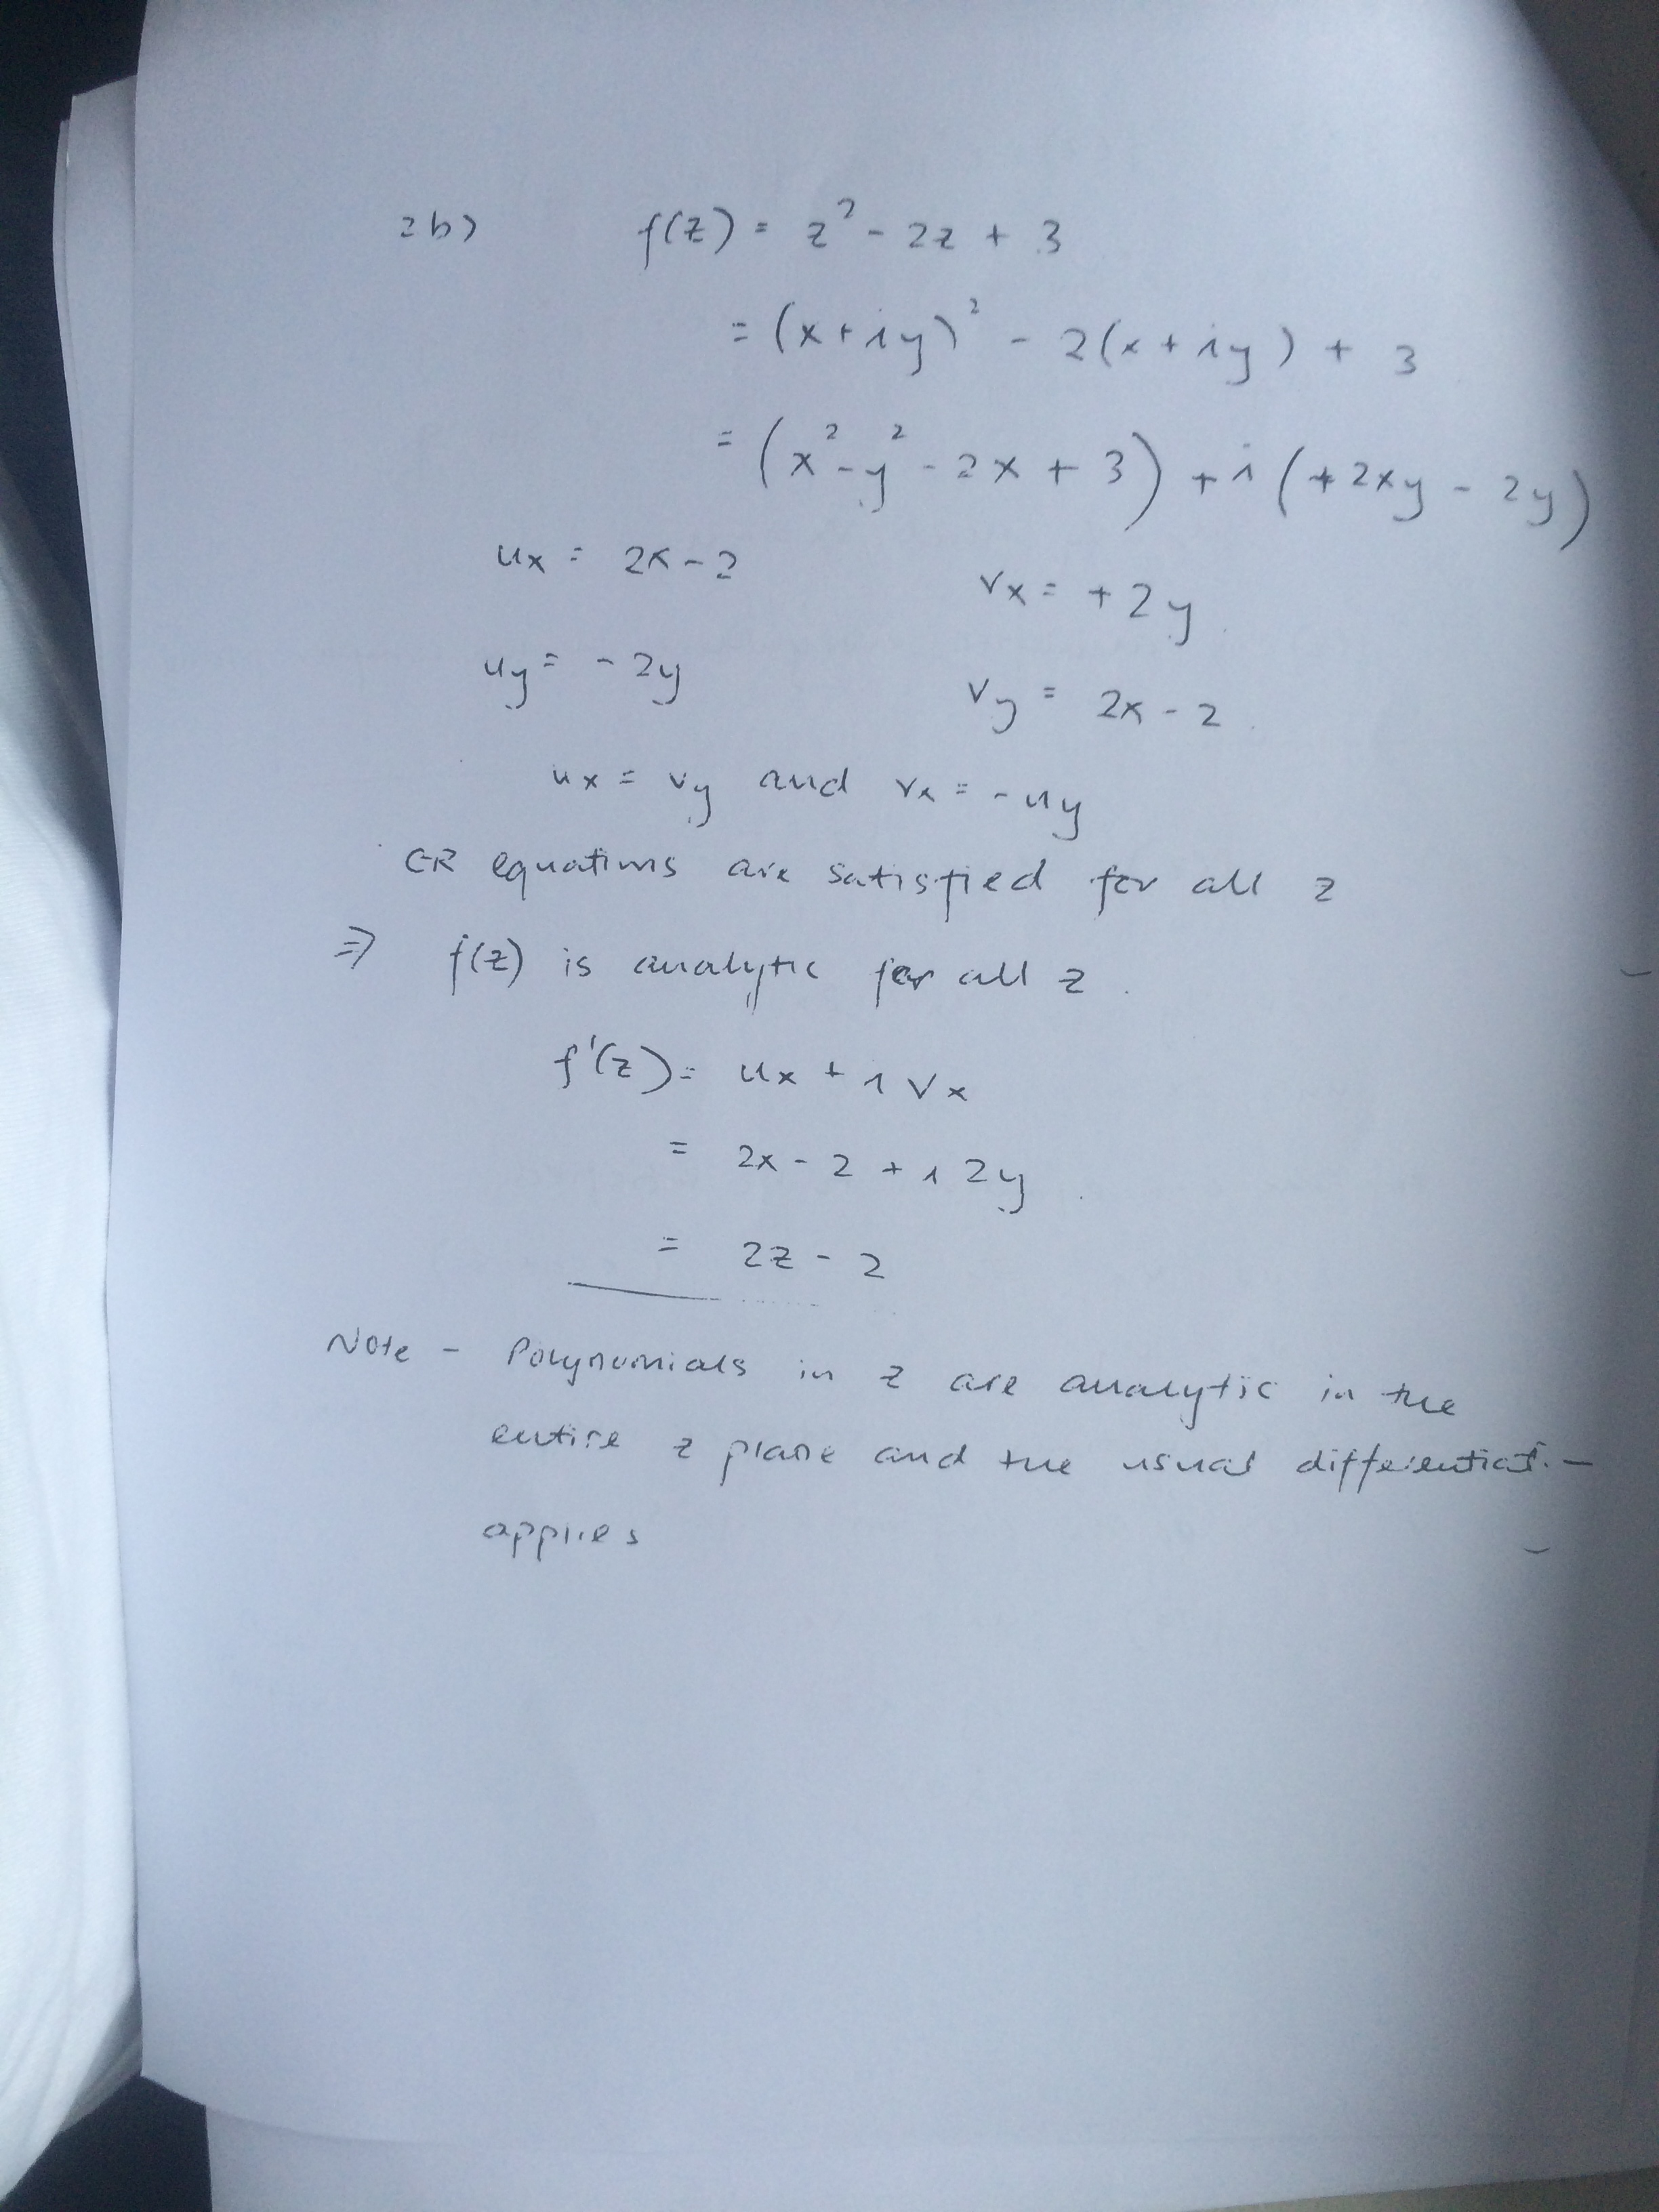 2b) f(z) = z² - 2z + 3
= (x+iy)² - 2(x+iy) + 3
= (x²-y²-2x+3) + i(+2xy - 2y)
ux = 2x-2 vx = +2y
uy = -2y vy = 2x-2
ux = vy and vx = -uy
CR equations are satisfied for all z
⇒ f(z) is analytic for all z.
f'(z) = ux + i vx
= 2x - 2 + i 2y
= 2z - 2
Note - Polynomials in z are analytic in the
entire z plane and the usual differentiat.-
applies